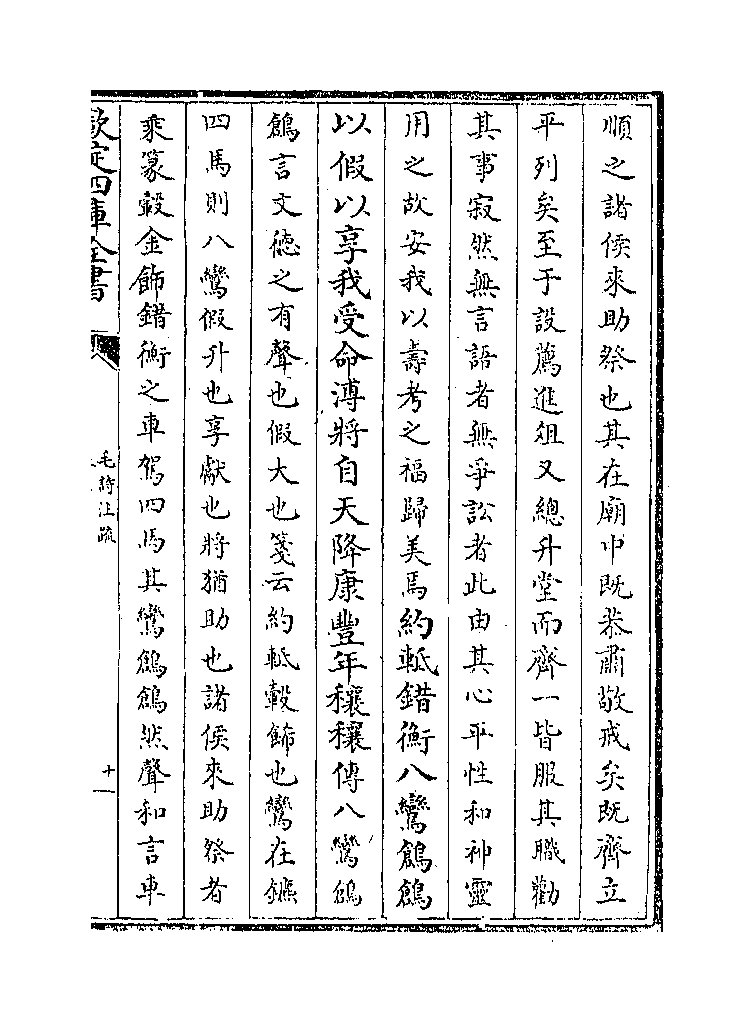 順之諸侯來助祭也其在廟中既恭肅敬戒矣既齊立
平列矣至于設薦進俎又總升堂而齊一皆服其職勸
其事寂然無言語者無爭訟者此由其心平性和神靈
用之故安我以壽考之福歸美焉約軧錯衡八鸞鶬鶬
以假以享我受命溥將自天降康豐年穰穰傳八鸞鶬
鶬言文徳之有聲也假大也箋云約軧轂飾也鸞在鑣
四馬則八鸞假升也享獻也將猶助也諸侯來助祭者
乘篆轂金飾錯衡之車駕四馬其鸞鶬鶬然聲和言車
欽定四庫全書
毛詩注疏
十一